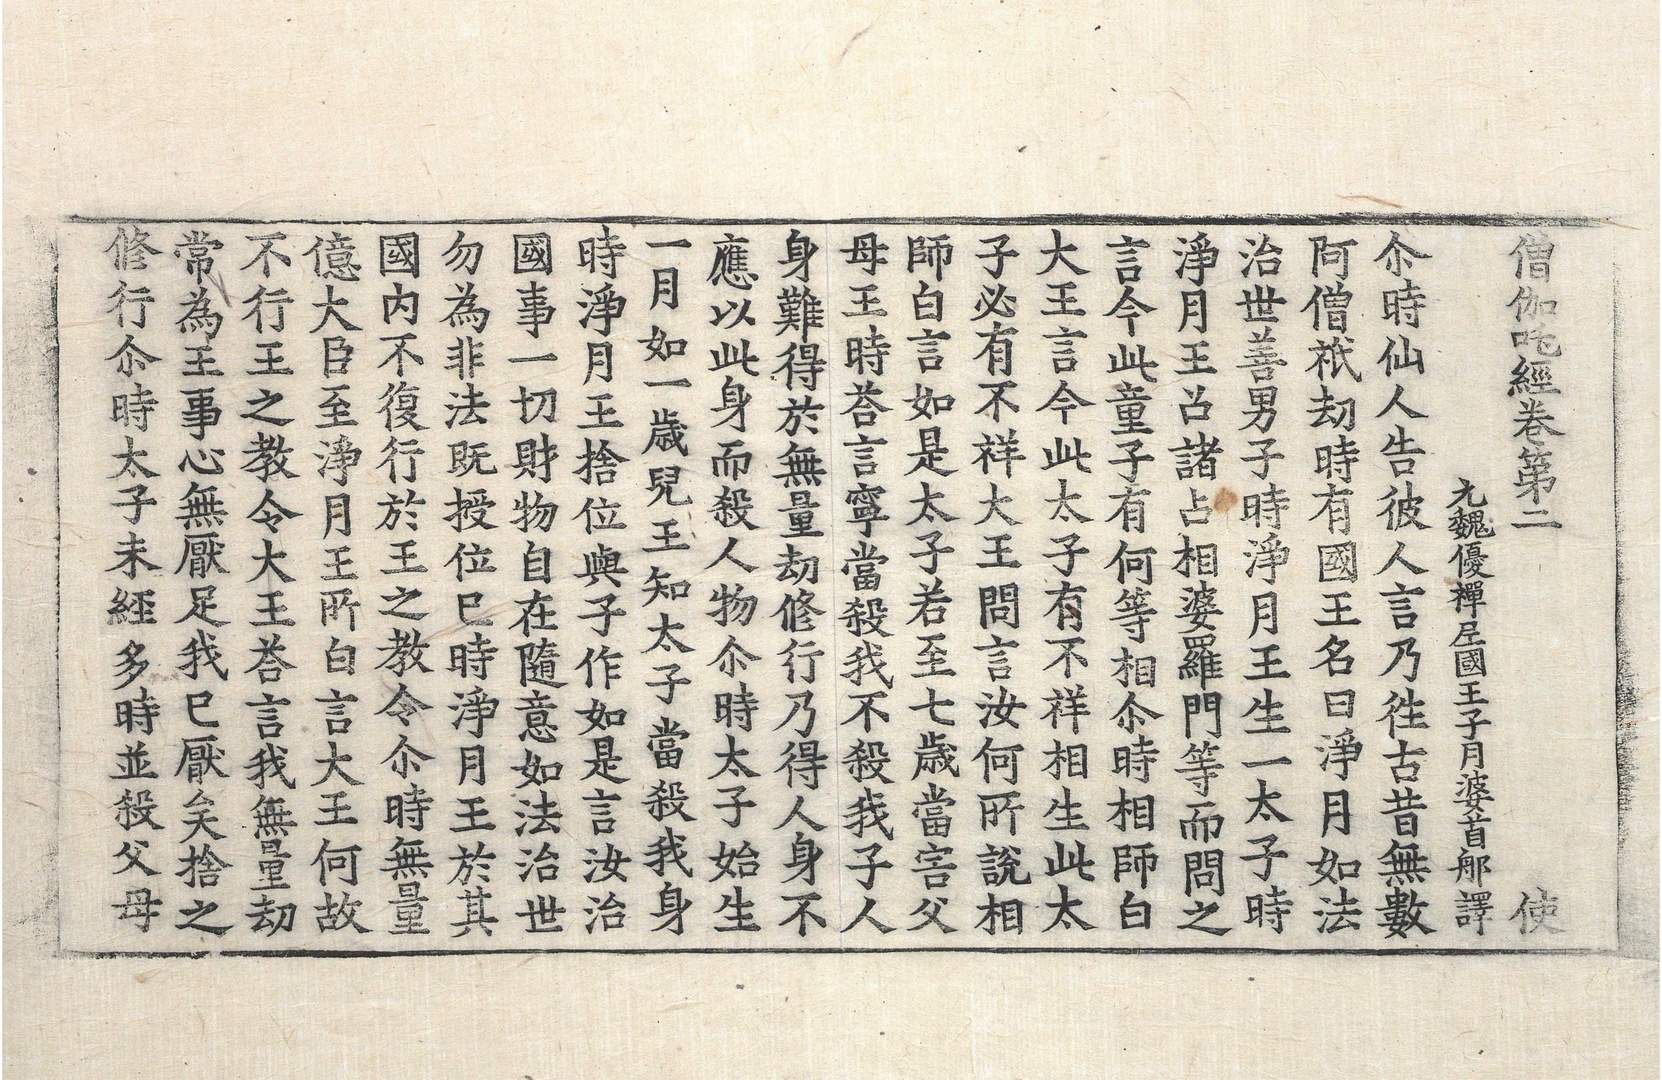 僧伽吒經卷第二 使
元魏優禪尼國王子月婆首那譯
尒時仙人告彼人言乃徃古昔無數
阿僧祇劫時有國王名曰淨月如法
治世善男子時淨月王生一太子時
淨月王召諸占相婆羅門等而問之
言今此童子有何等相尒時相師白
大王言今此太子有不祥相生此太
子必有不祥大王問言汝何所說相
師白言如是太子若至七歲當害父
母王時荅言寧當殺我不殺我子人
身難得於無量劫修行乃得人身不
應以此身而殺人物尒時太子始生
一月如一歲兒王知太子當殺我身
時淨月王捨位與子作如是言汝治
國事一切財物自在隨意如法治世
勿為非法既授位已時淨月王於其
國內不復行於王之教令尒時無量
億大臣至淨月王所白言大王何故
不行王之教令大王荅言我無量劫
常為王事心無厭足我已厭矣捨之
修行尒時太子未經多時並殺父母